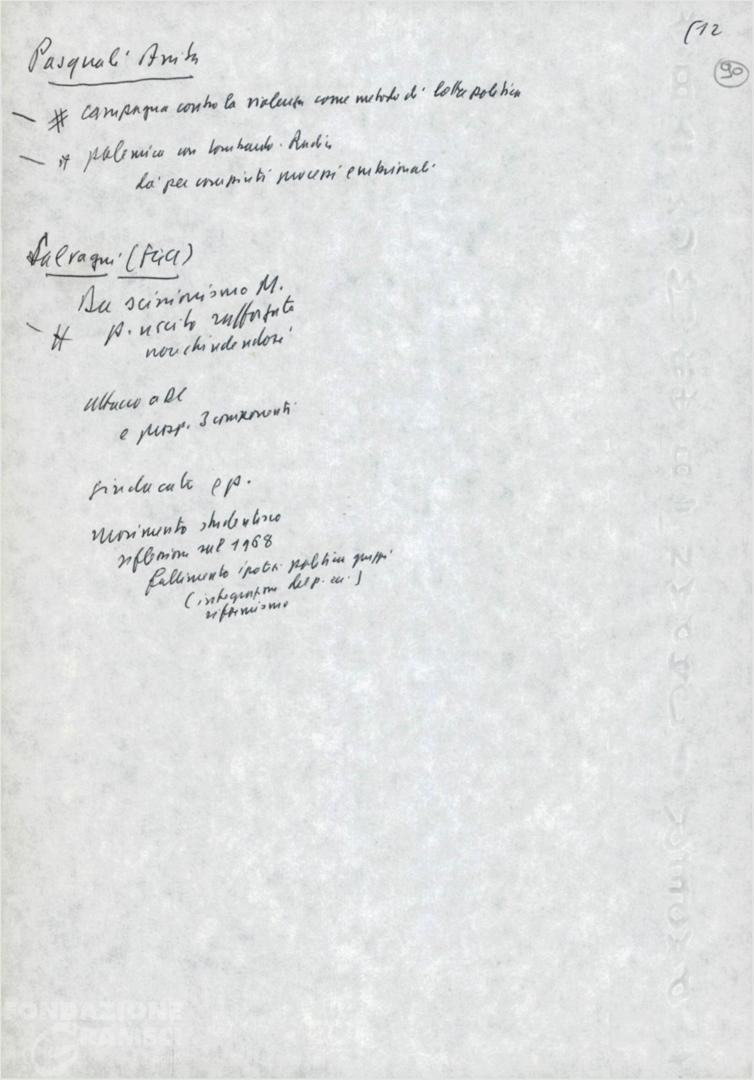 512
90
Pasquali Anita
— # campagna contro la violenza come metodo di lotta politica
— # polemica con Lombardo-Radice
dà per compiuti processi embrionali
Salvagni (FGCI)
scissionismo M.
— # p. uscito rafforzato
non chiudendosi
attacco a DC
e prosp. 3 componenti
sindacato e p.
movimento studentesco
riflessione sul 1968
fallimento ipotesi politica gruppi
(integrazione del p. in.)
riformismo
FONDAZIONE
GRAMSCI